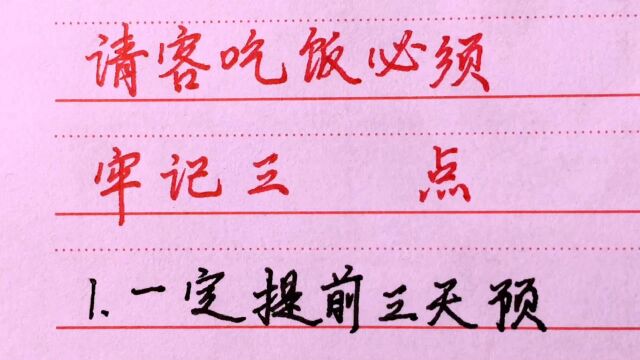 请客吃饭必须
牢记三 点
1.一定提前三天预